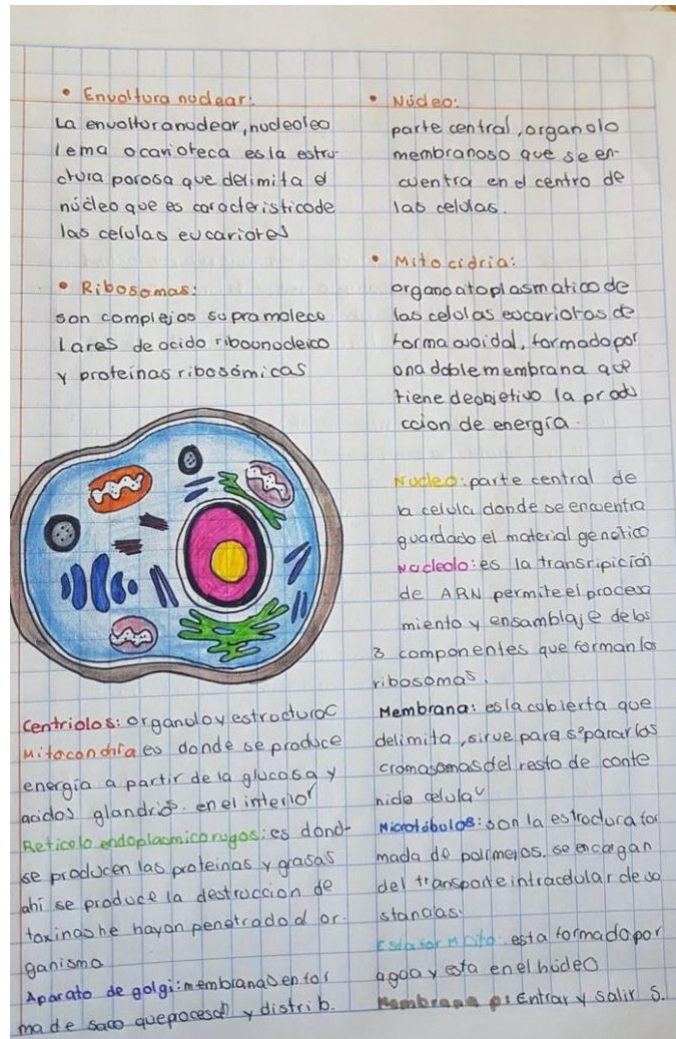 • Envoltura nuclear:
La envoltura nudear, nudeoleo
lema o carioteca es la estru-
ctura porosa que delimita el
núcleo que es caracteristicode
las celulas eucariotes
• Ribosomas:
son complejos supramolecu
Lares de acido ribonudeico
y proteínas ribosómicas
Centriolos: organulo y estructurac
Mitocondria es donde se produce
energía a partir de la glucosa y
acidos glandrios. en el interior
Reticolo endoplasmico rugos: es dond-
se producen las proteinas y grasas
ahí se produce la destruccion de
toxinas he hayan penetrado al or.
ganismo
Aparato de golgi: membranas en for
ma de saco que procesan y distrib.
• Núcleo:
parte central, organolo
membranoso que se en-
cuentra en el centro de
las celulas.
• Mitocidria:
organo citoplasmatico de
las celulas eucariotas de
forma ovoidal, formada por
una doble membrana que
tiene de objetivo la produ
ccion de energía.
Nucleo: parte central de
la celula donde se encuentra
guardado el material genetico
Nucleolo: es la transripición
de ARN permite el procesa
miento y ensamblaje de los
3 componentes que forman los
ribosomas.
Membrana: es la cobierta que
delimita, sirve para separar los
cromasomas del resto de conte
nido celular
Microtúbulos: son la estrodura for
mada de polimeros. se encargan
del transporte intracelular de su
stancias.
esta formado por
agua y esta en el núdeo
Membrana p: Entrar y salir s.